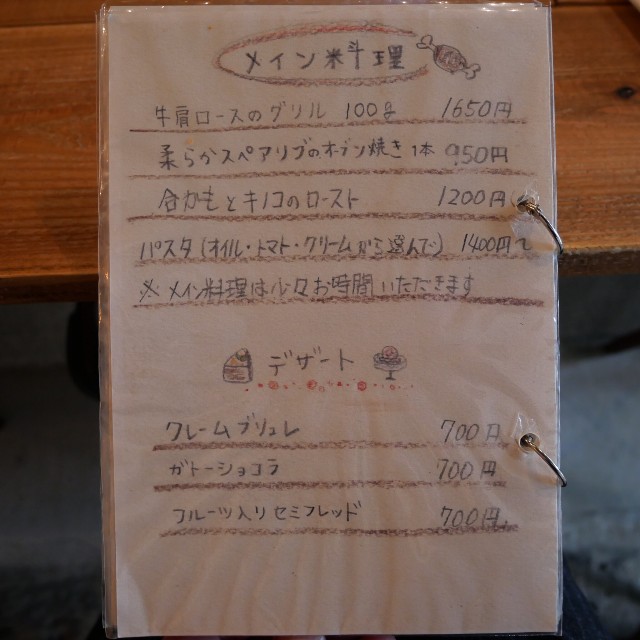 メイン料理
牛肩ロースのグリル 100g 1650円
柔らかスペアリブのオーブン焼き 1本 950円
合がもとキノコのロースト 1200円
パスタ(オイル・トマト・クリームから選んで) 1400円〜
※メイン料理は少々お時間いただきます
デザート
クレームブリュレ 700円
ガトーショコラ 700円
フルーツ入りセミフレッド 700円